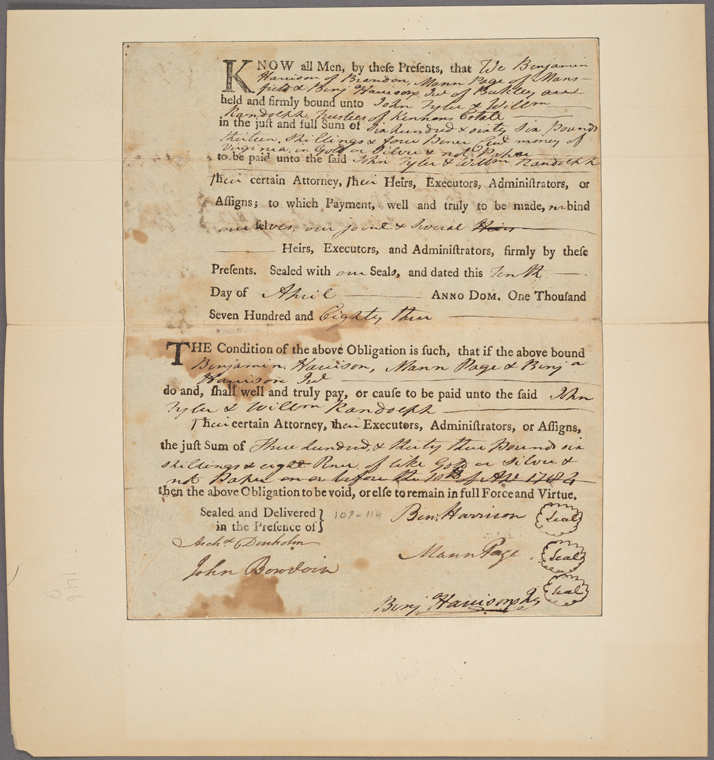 KNOW all Men, by these Presents, that We Benjamin
Harrison of Brandon, Mann Page of Mans-
field & Benj Harrison Junr of Berkley are
held and firmly bound unto John Tyler & Willm
Randolph Trustees of Kennons Estate
in the just and full Sum of Six hundred & sixty Six Pounds
thirteen Shillings & four Pence Curt money of
Virginia, in Gold or Silver & not Paper
to be paid unto the said John Tyler & Willm Randolph
Their certain Attorney, their Heirs, Executors, Administrators, or
Assigns; to which Payment, well and truly to be made, we bind
ourselves, our joint & several Heirs
Heirs, Executors, and Administrators, firmly by these
Presents. Sealed with our Seals, and dated this tenth
Day of April ANNO DOM. One Thousand
Seven Hundred and Eighty three
THE Condition of the above Obligation is such, that if the above bound
Benjamin Harrison, Mann Page & Benja
Harrison Junr
do and, shall well and truly pay, or cause to be paid unto the said John
Tyler & Willm Randolph
Their certain Attorney, their Executors, Administrators, or Assigns,
the just Sum of Three hundred, & thirty three Pounds six
shillings & eight Pence of like Gold or Silver &
not Paper on or before the 10th of 1784
then the above Obligation to be void, or else to remain in full Force and Virtue.
Sealed and Delivered
in the Presence of
109-114
Ben. Harrison Seal
Archd Denholm
Mann Page Seal
John Bowdoin
Benj Harrison Jr Seal